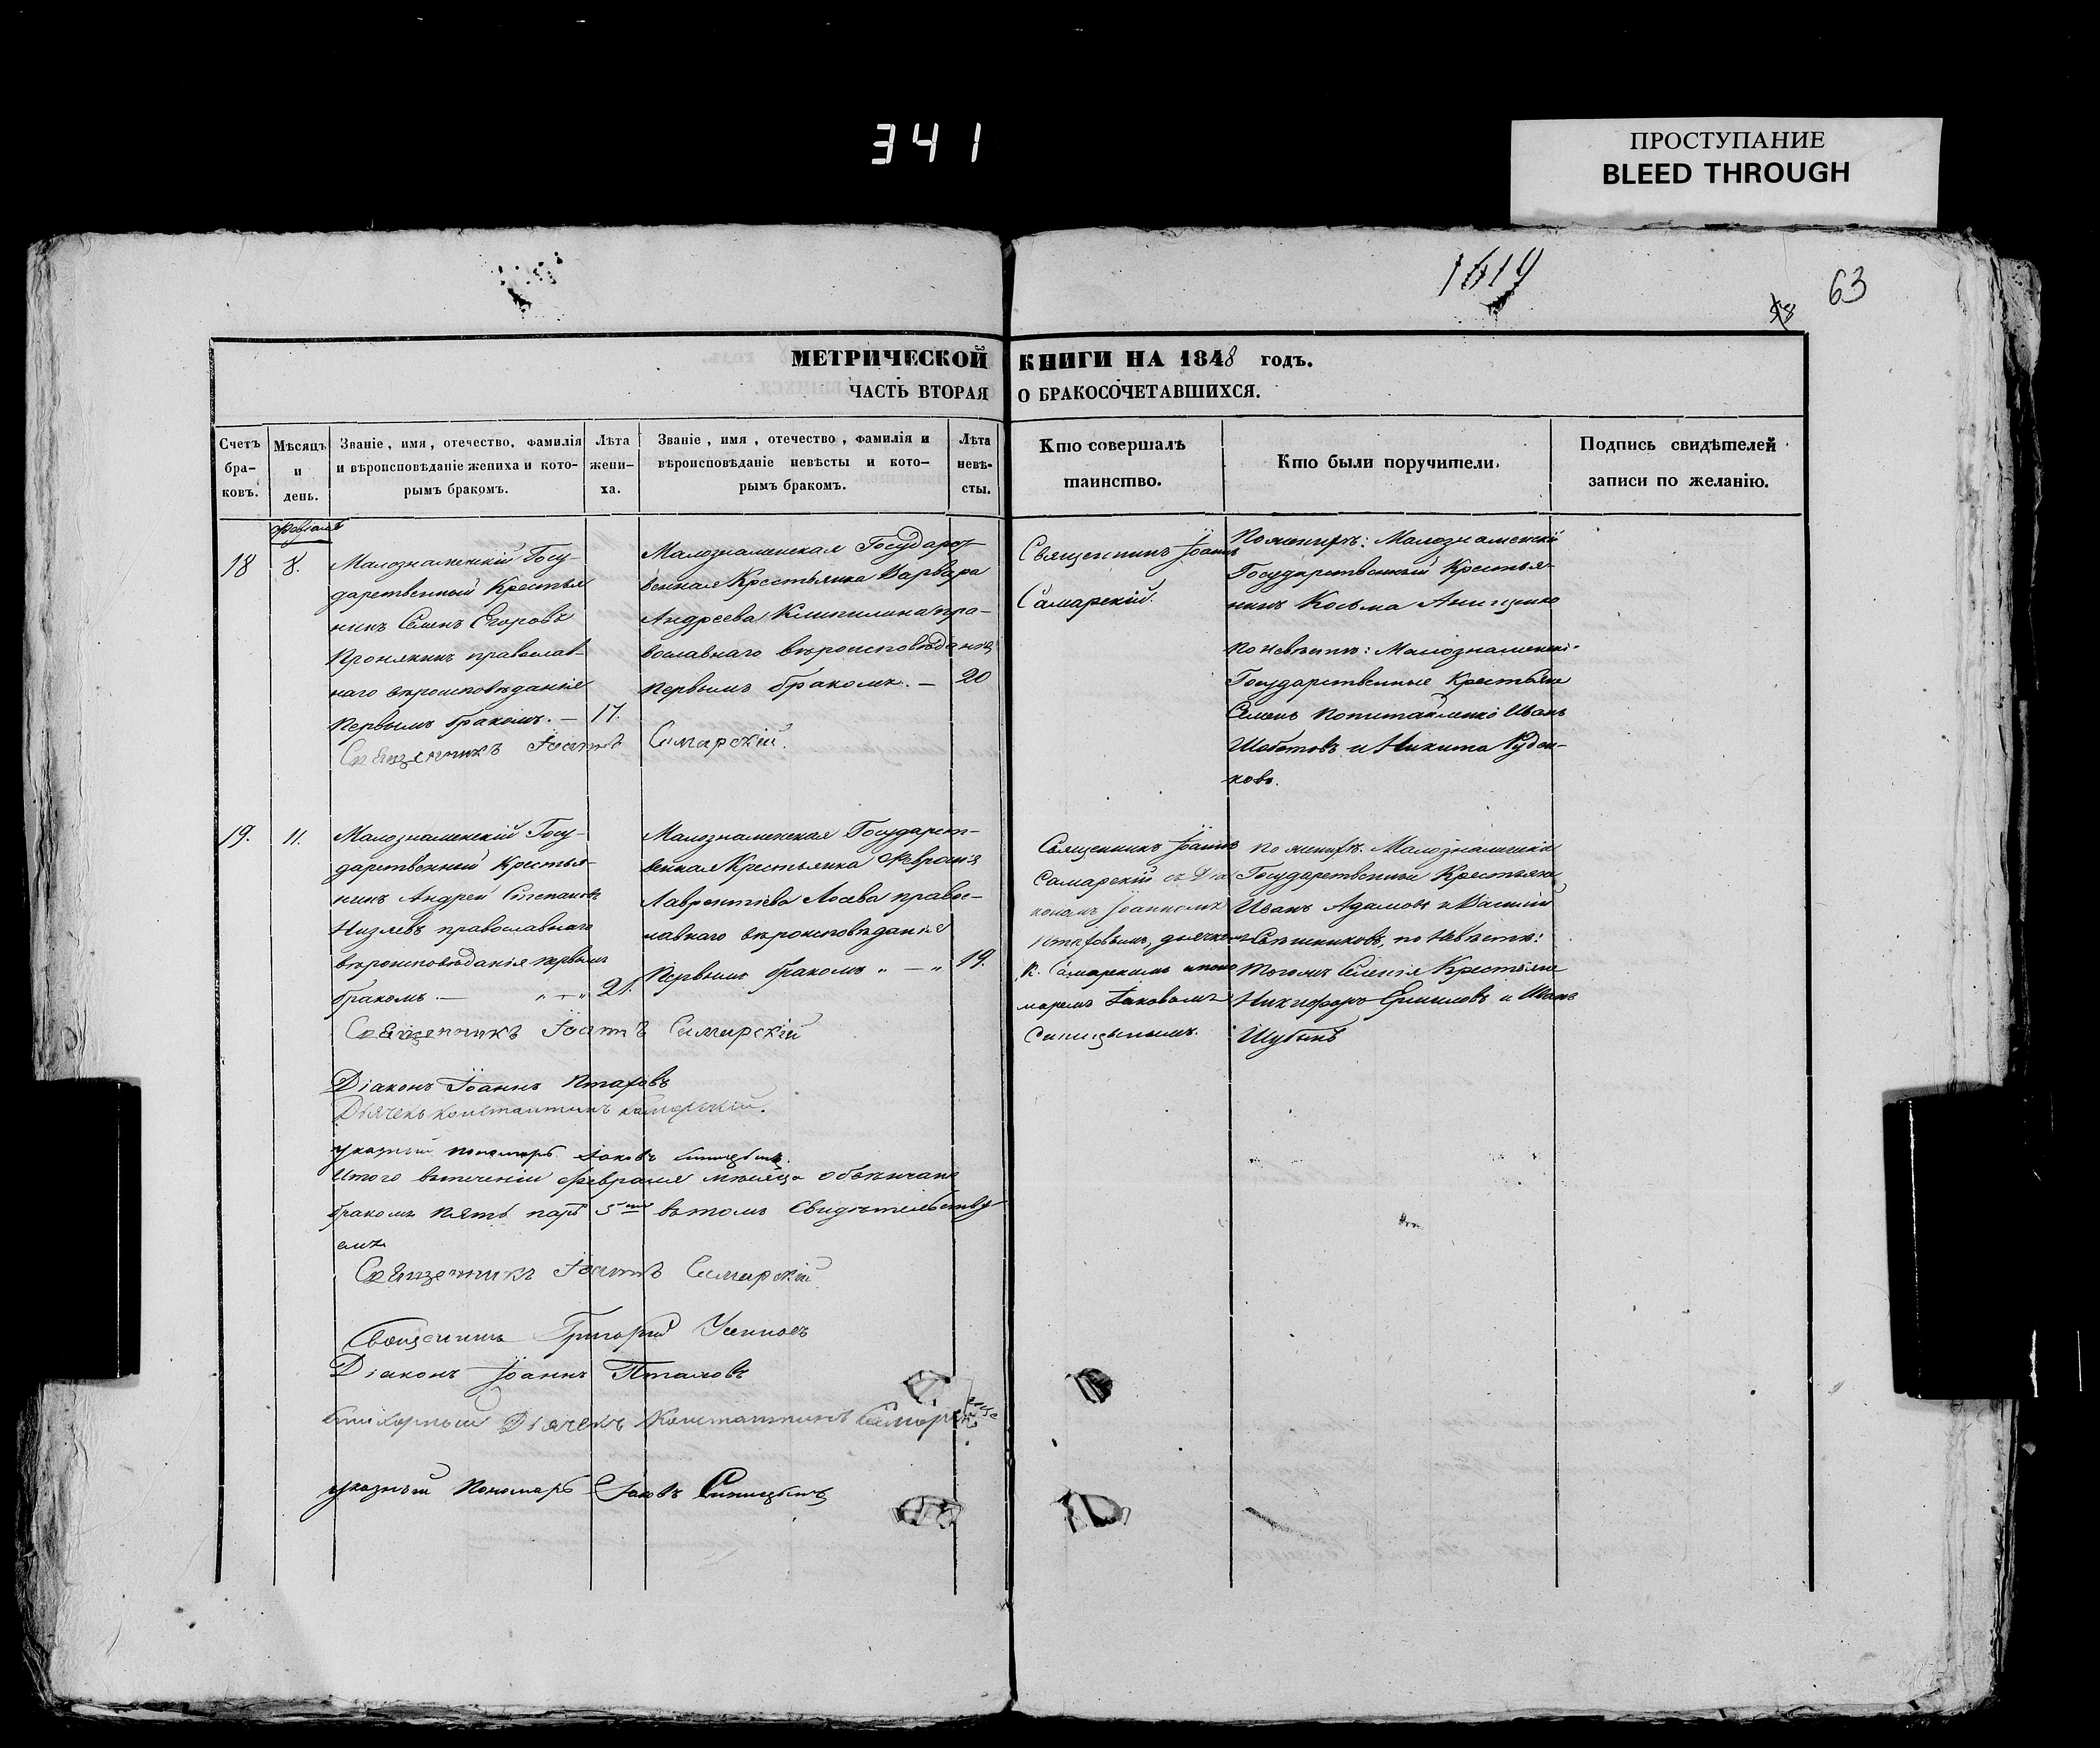 341
ПРОСТУПАНИЕ
BLEED THROUGH
1619
63
МЕТРИЧЕСКОЙ КНИГИ НА 1848 годъ.
ЧАСТЬ ВТОРАЯ О БРАКОСОЧЕТАВШИХСЯ.
Счетъ бра- ковъ.
Мѣсяцъ и день.
Званіе, имя, отечество, фамилія
и вѣроисповѣданіе жениха и кото-
рымъ бракомъ.
Лѣта жени- ха.
Званіе, имя, отечество, фамилія и
вѣроисповѣданіе невѣсты и кото-
рымъ бракомъ.
Лѣта невѣ- сты.
Кто совершалъ
таинство.
Кто были поручители.
Подпись свидѣтелей
записи по желанію.
Февраля
18
8.
Малознаменскій Госу-
дарственный Крестья
нинъ Семенъ Егоровъ
Пронякинъ православ-
наго вѣроисповѣданія
Первымъ бракомъ. —
17.
Малознаменская Государст-
венная Крестьянка Варвара
Андреева пра-
вославнаго вѣроисповѣданія
Первымъ бракомъ. —
20
Священникъ Іоаннъ
Самарскій.
По женихѣ: Малознаменскій
Государственный Крестья-
нинъ Косьма Анищенко
По невѣстѣ: Малознаменскіе
Государственные Крестьяне
Семенъ Иванъ
Шаботовъ и Никита Руден-
ковъ.
Священникъ Іоаннъ Самарскій.
19.
11.
Малознаменскій Госу-
дарственный Крестья-
нинъ Андрей Степановъ
Низлевъ православнаго
вѣроисповѣданія первымъ
бракомъ. —
21.
Малознаменская Государст-
венная Крестьянка Февронія
Лаврентіева Лосева правос-
лавнаго вѣроисповѣданія
Первымъ бракомъ „ — „
19.
Священникъ Іоаннъ
Самарскій съ Діа
кономъ Іоанномъ
Птаховымъ, дьячкомъ
К. Самарскимъ и поно
маремъ Іаковомъ
Синицынымъ.
По женихѣ. Малознаменскіе
Государственные Крестьяне
Иванъ Адамовъ и Василій
по Невѣстѣ:
тогожъ Селенія Крестьяне
Никифоръ Ермиловъ и Иванъ
Шубинъ
Священникъ Іоаннъ Самарскій
Діаконъ Іоаннъ Птаховъ
Дьячекъ Константинъ Самарскій.
указный пономарь Іаковъ Синицынъ.
Итого втеченіи февраля мѣсяца обвѣнчано
бракомъ Пять паръ 5ть вътомъ Свидѣтельству
емъ
Священникъ Іоаннъ Самарскій
Священникъ Григорій
Діаконъ Іоаннъ Птаховъ
Стихарный Дьячекъ Константинъ Самарскій
указный Пономарь Іаковъ Синицынъ